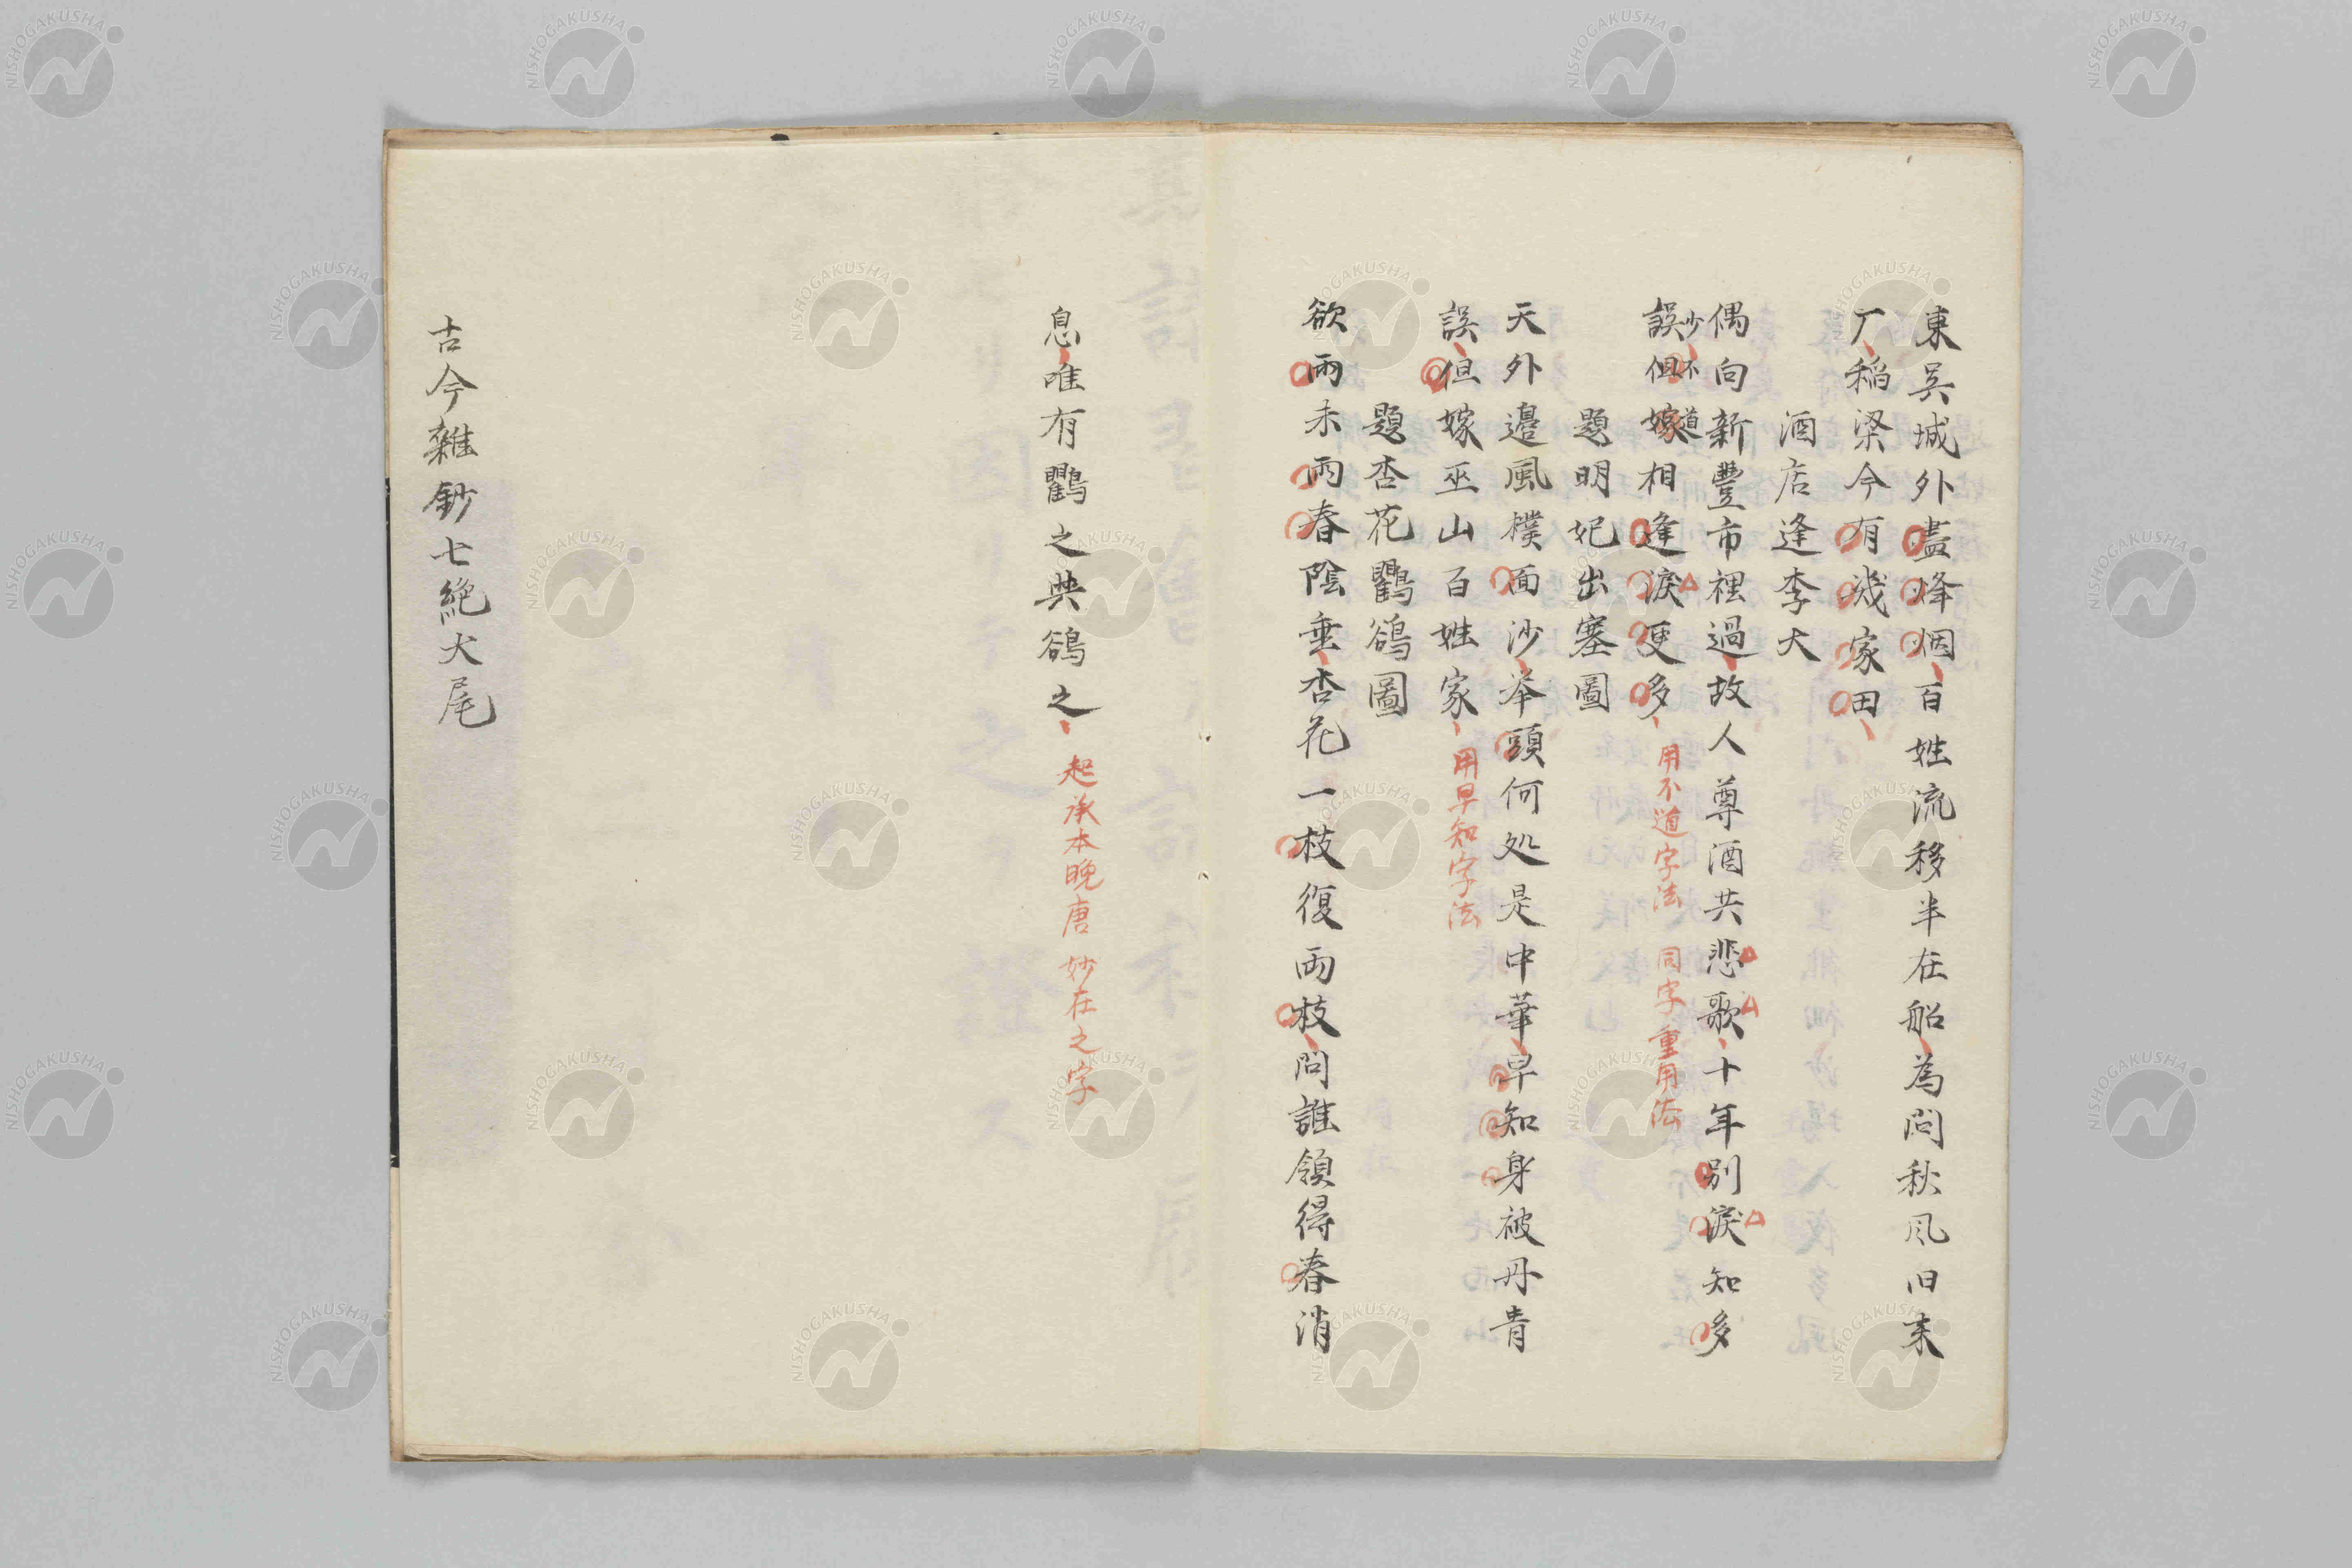 東吴城外盡烽烟百姓流移半在船為問秋风旧来
厂稲梁今有幾家田
酒店逢李大
偶向新豐市裡過故人尊酒共悲歌十年別淚知多
少不道
誤但嫁相逢淚更多 用不道字法 同字重用法
題明妃出塞圖
天外邉風樸面沙举頭何処是中華早知身被丹青
誤但嫁巫山百姓家 用早知字法
題杏花鸜鵒圖
欲雨未雨春陰垂杏花一枝復兩枝問誰領得春消
息唯有鸜之與鵒之 起承本晚唐 妙在之字
古今雜鈔七絕犬尾
NISHOGAKUSHA